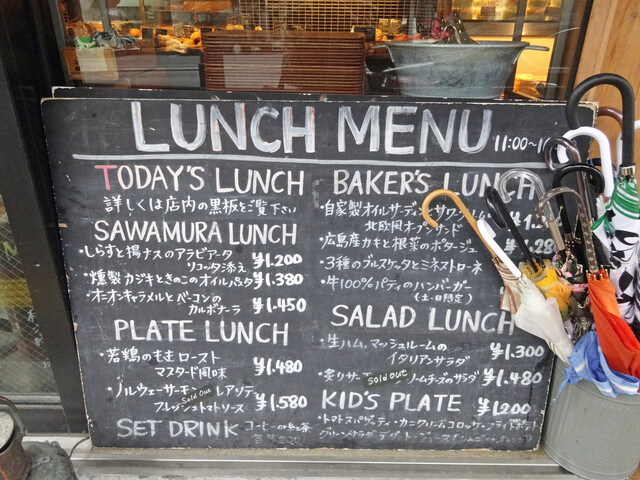 LUNCH MENU 11:00~1
TODAY'S LUNCH
詳しくは店内の黒板をご覧下さい
SAWAMURA LUNCH
・しらすと揚ナスのアラビアータ
リコッタ添え ¥1.200
・燻製カジキときのこのオイルパスタ ¥1.380
・オニオンキャラメルとベーコンの
カルボナーラ ¥1.450
PLATE LUNCH
・若鶏のもも ロースト
マスタード風味 ¥1.480
・ノルウェーサーモン レアソテー
Sold Out
フレッシュトマトソース ¥1.580
SET DRINK コーヒー or 紅茶
BAKER'S LUNCH
・自家製オイルサーディンとサワー
北欧風オープンサンド ¥1.2
・広島産カキと根菜のポタージュ ¥1.28
・3種のブルスケッタとミネストローネ
・牛100%パティのハンバーガー
(土・日限定)
SALAD LUNCH
・生ハム、マッシュルームの
イタリアンサラダ ¥1.300
・炙りサー Sold Out ームチーズのサラダ ¥1.480
KID'S PLATE ¥1200
・トマトスパゲッティ・カニクリームコロッケ・フライドポテト
グリーンサラダ